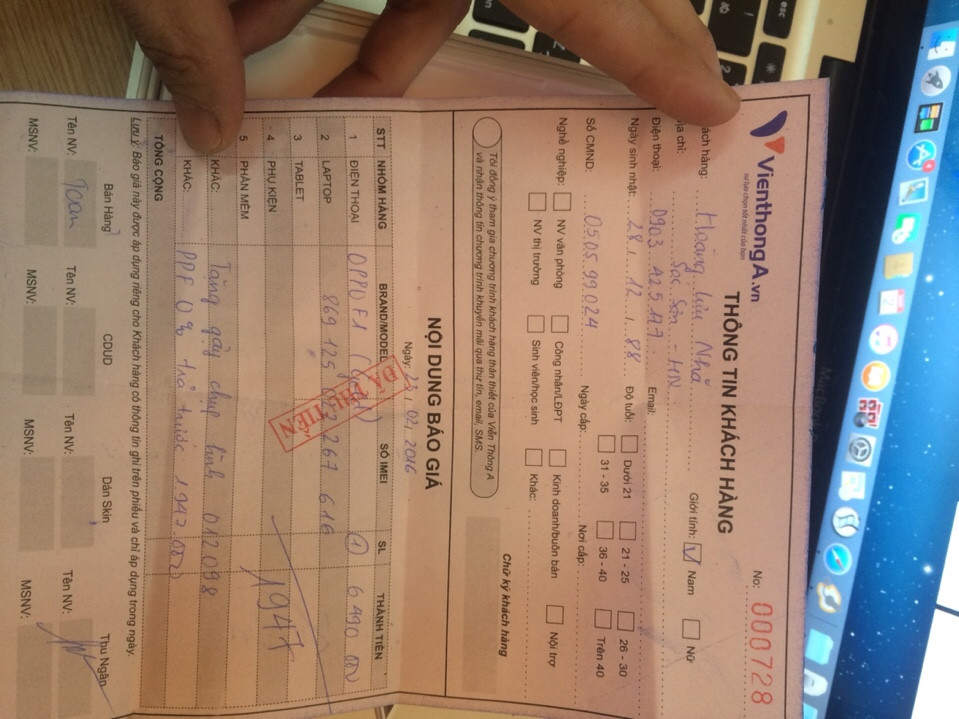 VienthongA.vn
sự lựa chọn tốt nhất của bạn
No: 000728
THÔNG TIN KHÁCH HÀNG
ách hàng: Hoàng Nhã Giới tính: Nam Nữ
ịa chỉ: Sóc Sơn - HN
Điện thoại: 0903 Email:
Ngày sinh nhật: 28 / 12 / 88 Độ tuổi: Dưới 21 21 - 25 26 - 30
31 - 35 36 - 40 Trên 40
Số CMND: 050599024 Ngày cấp: Nơi cấp:
Nghề nghiệp: NV văn phòng Công nhân/LĐPT Kinh doanh/buôn bán Nội trợ
NV thị trường Sinh viên/học sinh Khác:
Tôi đồng ý tham gia chương trình khách hàng thân thiết của Viễn Thông A
và nhận thông tin chương trình khuyến mãi qua thư tín, email, SMS.
Chữ ký khách hàng
NỘI DUNG BÁO GIÁ
Ngày: / 02 / 2016
STT NHÓM HÀNG BRAND/MODEL SỐ IMEI SL THÀNH TIỀN
1 ĐIỆN THOẠI OPPO F1 (Gold) 1 6490 000
2 LAPTOP 869 125 267 616
ĐÃ THU TIỀN
3 TABLET
4 PHỤ KIỆN
5 PHẦN MỀM 1947
KHÁC: Tặng gậy chụp hình 012098
KHÁC: PPF 0% trả trước 1947.000
TỔNG CỘNG
Lưu ý: Báo giá này được áp dụng riêng cho Khách hàng có thông tin ghi trên phiếu và chỉ áp dụng trong ngày.
Bán Hàng CDUD Dán Skin Thu Ngân
Tên NV: Toàn Tên NV: Tên NV: Tên NV:
MSNV: MSNV: MSNV: MSNV: